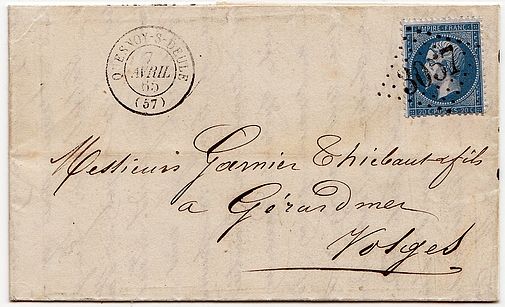 QUESNOY-S-DEULE
7
AVRIL
65
(57)
EMPIRE FRANC
3037
20 C POSTES 20 C
Messieurs Garnier Thiébaut & fils
a Gérardmer
Vosges